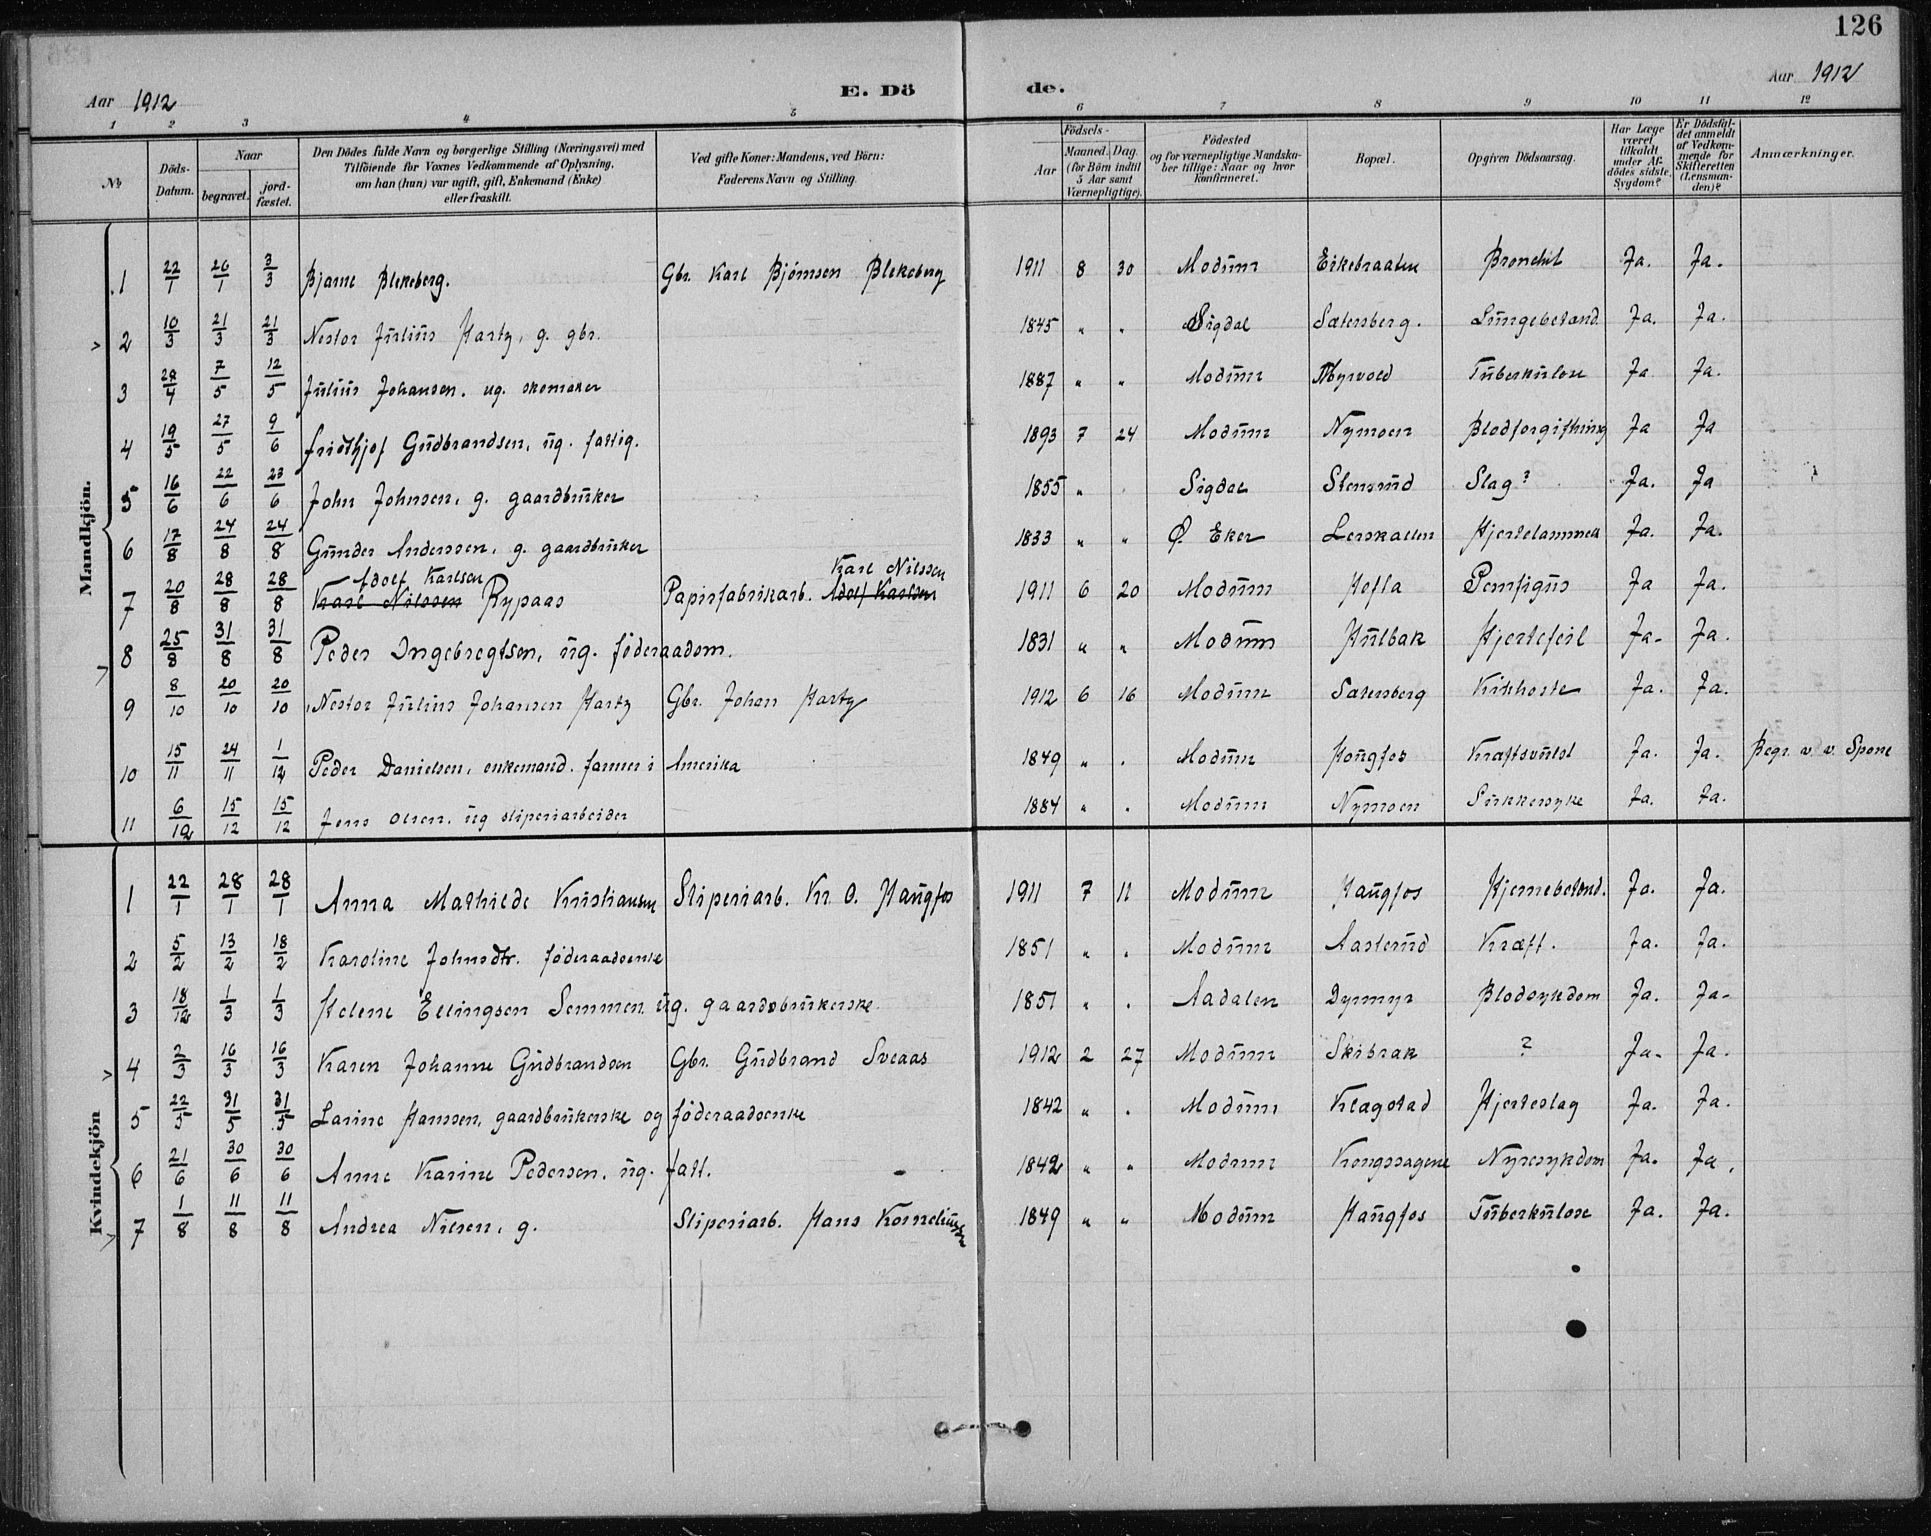 126
Aar 1912 E. Dö de. Aar 1912
1 2 3 4 5 6 7 8 9 10 11 12
№ Döds-Datum. Naar begravet. jordfæstet. Den Dödes fulde Navn og borgerlige Stilling (Næringsvei) med Tilföiende for Voxnes Vedkommende af Oplysning, om han (hun) var ugift, gift, Enkemand (Enke) eller fraskilt. Ved gifte Koner: Mandens, ved Börn: Faderens Navn og Stilling. Födsels- Aar Maaned. Dag. (for Börn indtil 5 Aar samt Værnepligtige). Födested og for værnepligtige Mandskaber tillige: Naar og hvor Konfirmeret. Bopæl. Opgiven Dödsaarsag. Har Læge været tilkaldt under Afdödes sidste Sygdom? Er Dödsfaldet anmeldt af Vedkommende for Skifteretten (Lensmanden)? Anmærkninger.
Mandkjön.
1 22/1 26/1 3/3 Bjarne Blekeberg. Gbr. Karl Bjørnsen Blekeberg 1911 8 30 Modum Eikebraaten Bronchit Ja. Ja.
2 10/3 21/3 21/3 Nestor Julius Hartz, g. gbr. 1845 " " Sigdal Sætersberg. Lungebetænd. Ja. Ja.
3 29/4 7/5 12/5 Julius Johansen. ug. skomaker 1887 " " Modum Myrvold Tuberkulose Ja Ja.
4 19/5 27/5 9/6 Fridthjof Gudbrandsen, ug. fattig. 1893 7 24 Modum Nymoen Blodforgiftning Ja Ja
5 16/6 22/6 23/6 John Johnsen, g. gaardbruker 1855 " Sigdal Stensrud Slag? Ja. Ja
6 17/8 24/8 24/8 Gunder Anderssen, g. gaardbruker 1833 " " Ø. Eker Lerskallen Hjertelammelse Ja. Ja.
Adolf Karlsen Karl Nilssen
7 20/8 28/8 28/8 Karl Nilssen Rypaas Papirfabrikarb. Adolf Karlsen 1911 6 20 Modum Hofla Pemfigus Ja Ja.
8 25/8 31/8 31/8 Peder Ingebregtsen, ug. föderaadsm. 1831 " " Modum Hulbak Hjertefeil Ja- Ja.
9 8/10 20/10 20/10 Nestor Julius Johansen Hartz Gbr. Johan Hartz 1912 6 16 Modum Sætersberg Kikhoste Ja. Ja.
10 15/11 24/11 1/12 Peder Danielsen, enkemand. farmer i Amerika 1849 " . Modum Haugfos Kræftsvulst Ja. Ja. Begr. v. v. Spone
11 6/12 15/12 15/12 Jens Olsen. ug sliperiarbeider 1884 " . Modum Nymoen Sukkersyke Ja. Ja.
Kvindekjön
1 22/1 28/1 28/1 Anna Mathilde Kristiansen Sliperiarb. Kr. O. Haugfos 1911 7 11 Modum Haugfos Hjernebetænd. Ja. Ja.
2 5/2 13/2 18/2 Karoline Johnsdtr. föderaadsenke 1851 " . Modum Aasterud Kræft. Ja. Ja.
3 18/12 1/3 1/3 Helene Ellingsen Semmen ug. gaardbrukerske 1851 " . Aadalen Dyrmyr Blodsykdom Ja. Ja-
4 2/3 16/3 16/3 Karen Johanne Gudbrandsen Gbr. Gudbrand Sveaas 1912 2 27 Modum Skibrak ? Ja- Ja.
5 22/5 31/5 31/5 Larine Hanssen, gaardbrukerske og föderaadsenke 1842 " . Modum Klagstad Hjerteslag Ja. Ja.
6 21/6 30/6 30/6 Anne Karine Pedersen. ug. fatt. 1842 " " Modum Kongssagene Nyresykdom Ja. Ja.
7 1/8 11/8 11/8 Andrea Nilsen, g. Sliperiarb. Hans Korneliussen 1849 " " Modum Haugfos Tuberkulose Ja. Ja.